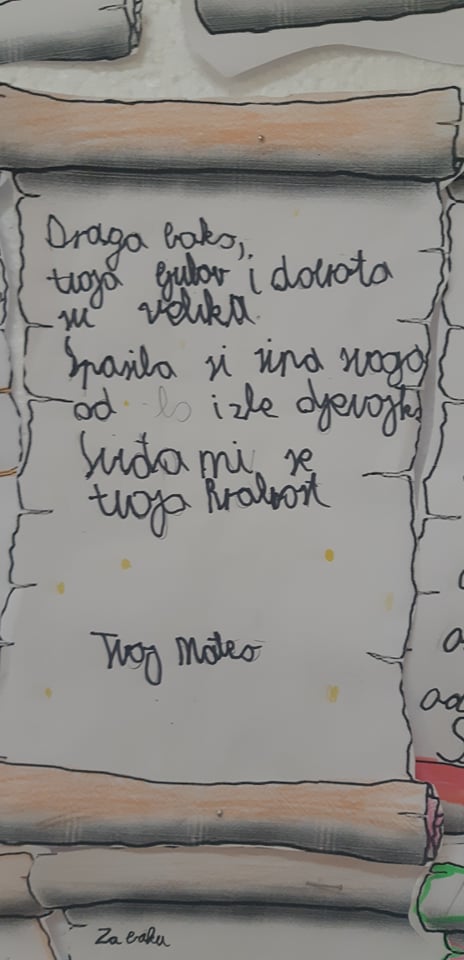 Draga bako,
tvoja ljubav i dobrota
su velika.
Spasila si sina svoga
od izle djevojke
Sviđa mi se
tvoja hrabrost
Tvoj Mateo
Za baku